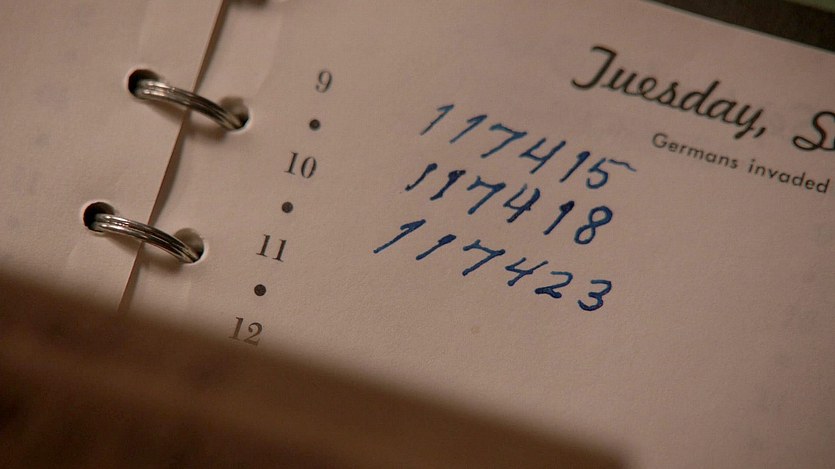 Tuesday, S
Germans invaded
9
10
11
12
117415
117418
117423